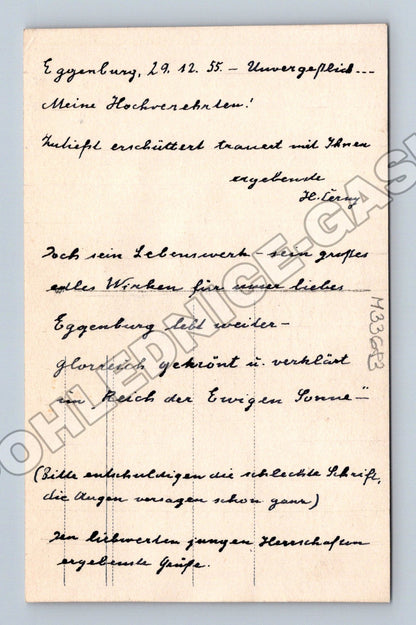 Eggenburg, 29.12.55. – Unvergeßlich...
Meine Hochverehrten!
Zutiefst erschüttert trauert mit Ihnen
ergebenste
H. Černy
Doch sein Lebenswerk – sein großes
edles Wirken für unser liebes
Eggenburg lebt weiter –
glorreich gekrönt u. verklärt
im „Reich der Ewigen Sonne –"
(Bitte entschuldigen die schlechte Schrift,
die Augen versagen schon ganz)
Den liebwerten jungen Herrschaften
ergebenste Grüße.
M33653
POHLEDNICE-GASK